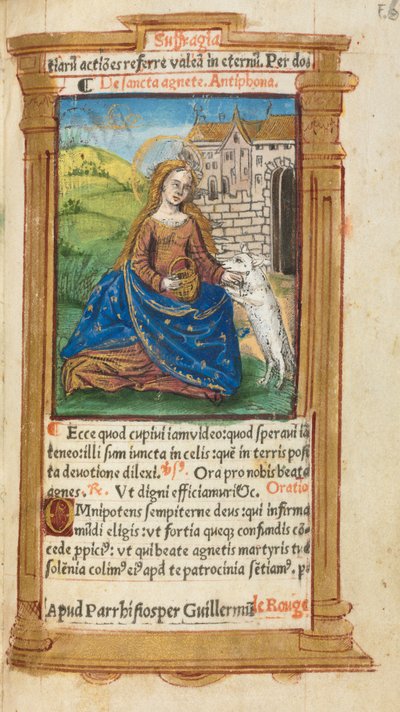 F. 6
Suffragia
tiarū actiōes referre valeā in eternū. Per do
¶ De sancta agnete. Antiphona.
¶ Ecce quod cupivi iam video: quod speravi iā
teneo: illi sum iuncta in celis: quē in terris posi
ta devotione dilexi. Ora pro nobis beata
agnes. Ut digni efficiamur. Oratio
OMnipotens sempiterne deus: qui infirma
mūdi eligis: ut fortia queqz confundis cō
cede ppici⁹: ut qui beate agnetis martyris tue
solēnia colim⁹ ei⁹ apd te patrocinia sētiam⁹. p
Apud Parrhisios per Guillermū le Rouge